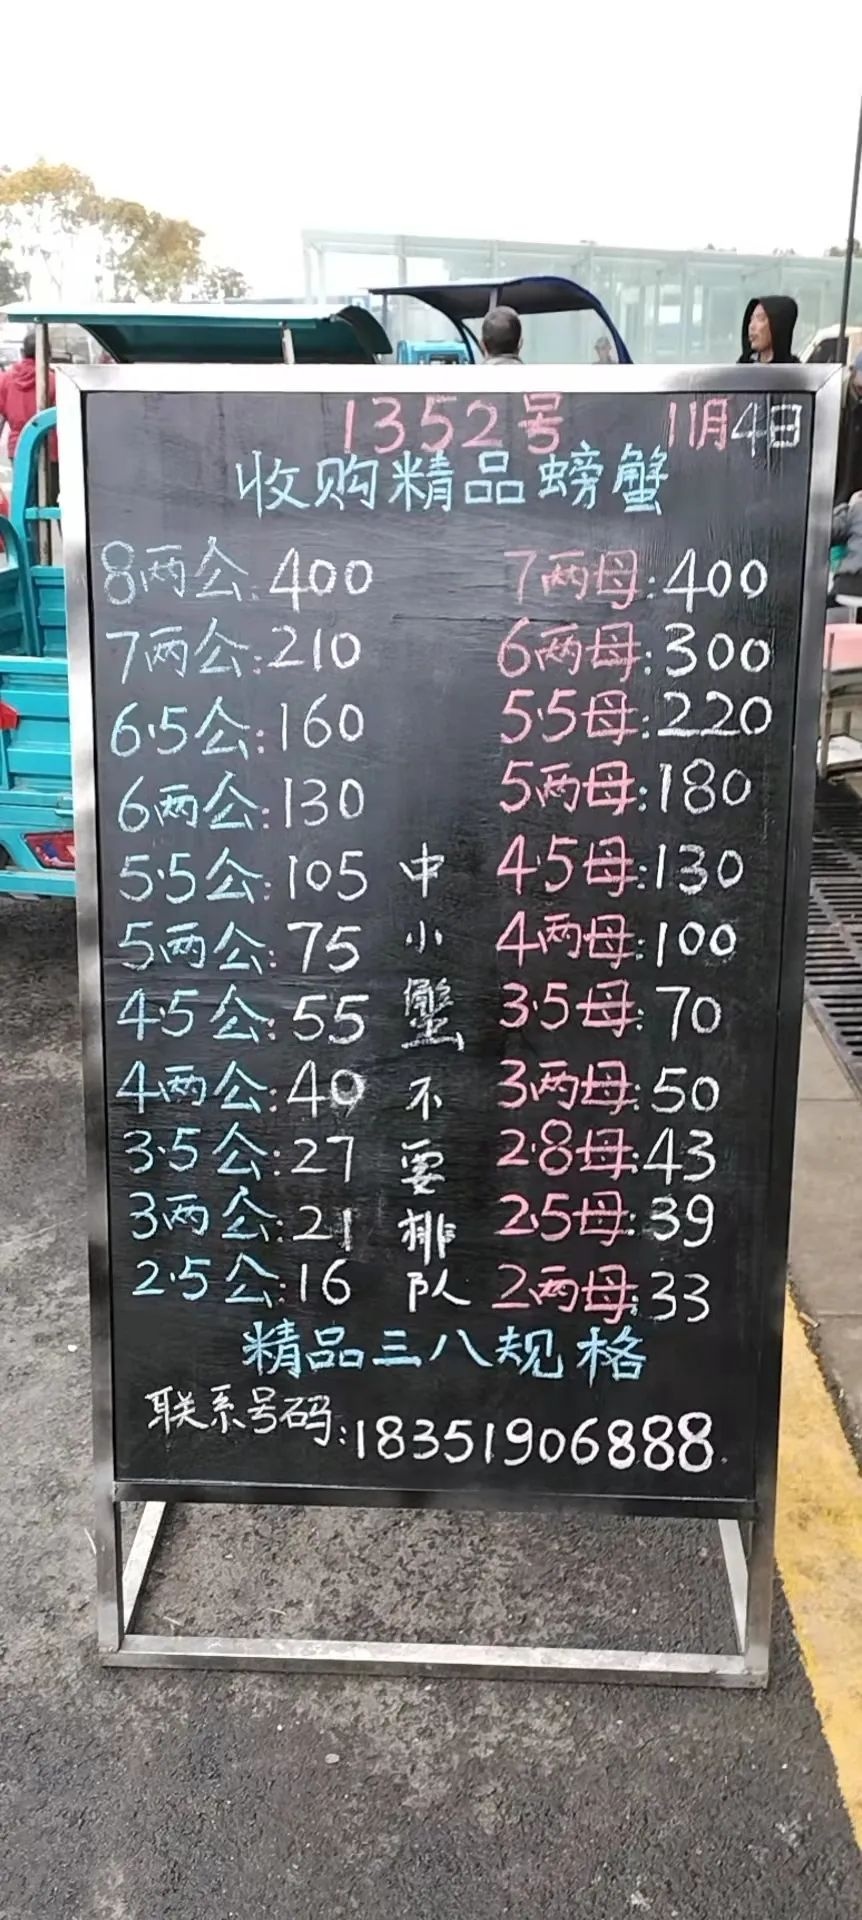 1352号 11月4日
收购精品螃蟹
8两公:400
7两公:210
6.5公:160
6两公:130
5.5公:105
5两公:75
4.5公:55
4两公:40
3.5公:27
3两公:21
2.5公:16
中小蟹不要排队
7两母:400
6两母:300
5.5母:220
5两母:180
4.5母:130
4两母:100
3.5母:70
3两母:50
2.8母:43
2.5母:39
2两母:33
精品三八规格
联系号码:18351906888